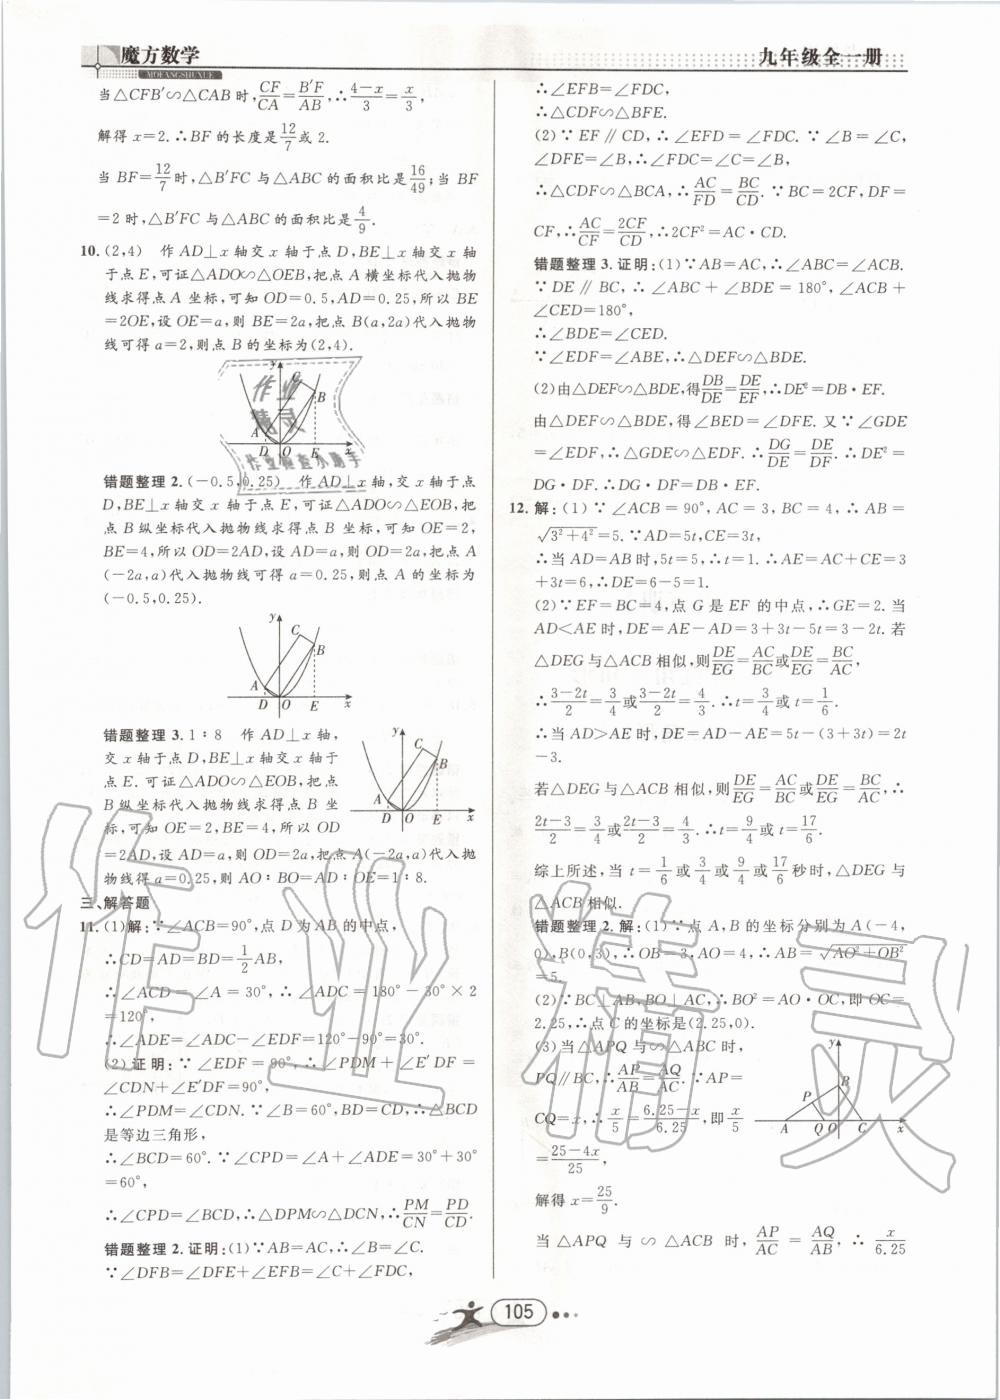 魔方数学
MOFANGSHUXUE
九年级全一册
当△CFB′∽△CAB时,CF/CA=B′F/AB,∴(4-x)/3=x/3,
解得x=2.∴BF的长度是12/7或2.
当BF=12/7时,△B′FC与△ABC的面积比是16/49;当BF
=2时,△B′FC与△ABC的面积比是4/9.
10.(2,4) 作AD⊥x轴交x轴于点D,BE⊥x轴交x轴
于点E,可证△ADO∽△OEB,把点A横坐标代入抛物
线求得点A坐标,可知OD=0.5,AD=0.25,所以BE
=2OE,设OE=a,则BE=2a,把点B(a,2a)代入抛物
线可得a=2,则点B的坐标为(2,4).
y
C
B
A
D O E x
作业
精灵
作业检查小助手
错题整理2.(-0.5,0.25) 作AD⊥x轴,交x轴于点
D,BE⊥x轴交x轴于点E,可证△ADO∽△EOB,把
点B纵坐标代入抛物线求得点B坐标,可知OE=2,
BE=4,所以OD=2AD,设AD=a,则OD=2a,把点A
(-2a,a)代入抛物线可得a=0.25,则点A的坐标为
(-0.5,0.25).
y
C
B
A
D O E x
错题整理3.1∶8 作AD⊥x轴,
交x轴于点D,BE⊥x轴交x轴于
点E.可证△ADO∽△EOB,把点
B纵坐标代入抛物线求得点B坐
标,可知OE=2,BE=4,所以OD
=2AD,设AD=a,则OD=2a,把点A(-2a,a)代入抛
物线得a=0.25,则AO∶BO=AD∶OE=1∶8.
y
C
B
A
D O E x
三、解答题
11.(1)解:∵∠ACB=90°,点D为AB的中点,
∴CD=AD=BD=1/2AB,
∴∠ACD=∠A=30°,∴∠ADC=180°-30°×2
=120°,
∴∠ADE=∠ADC-∠EDF=120°-90°=30°.
(2)证明:∵∠EDF=90°,∴∠PDM+∠E′DF=
∠CDN+∠E′DF=90°,
∴∠PDM=∠CDN.∵∠B=60°,BD=CD,∴△BCD
是等边三角形,
∴∠BCD=60°.∵∠CPD=∠A+∠ADE=30°+30°
=60°,
∴∠CPD=∠BCD,∴△DPM∽△DCN,∴PM/CN=PD/CD.
错题整理2.证明:(1)∵AB=AC,∴∠B=∠C.
∵∠DFB=∠DFE+∠EFB=∠C+∠FDC,
∴∠EFB=∠FDC,
∴△CDF∽△BFE.
(2)∵EF∥CD,∴∠EFD=∠FDC.∵∠B=∠C,
∠DFE=∠B,∴∠FDC=∠C=∠B,
∴△CDF∽△BCA,∴AC/FD=BC/CD.∵BC=2CF,DF=
CF,∴AC/CF=2CF/CD,∴2CF²=AC·CD.
错题整理3.证明:(1)∵AB=AC,∴∠ABC=∠ACB.
∵DE∥BC,∴∠ABC+∠BDE=180°,∠ACB+
∠CED=180°,
∴∠BDE=∠CED.
∵∠EDF=∠ABE,∴△DEF∽△BDE.
(2)由△DEF∽△BDE,得DB/DE=DE/EF,∴DE²=DB·EF.
由△DEF∽△BDE,得∠BED=∠DFE.又∵∠GDE
=∠EDF,∴△GDE∽△EDF.∴DG/DE=DE/DF.∴DE²=
DG·DF.∴DG·DF=DB·EF.
12.解:(1)∵∠ACB=90°,AC=3,BC=4,∴AB=
√(3²+4²)=5.∵AD=5t,CE=3t,
∴当AD=AB时,5t=5,∴t=1.∴AE=AC+CE=3
+3t=6,∴DE=6-5=1.
(2)∵EF=BC=4,点G是EF的中点,∴GE=2.当
AD<AE时,DE=AE-AD=3+3t-5t=3-2t.若
△DEG与△ACB相似,则DE/EG=AC/BC或DE/EG=BC/AC,
∴(3-2t)/2=3/4或(3-2t)/2=4/3.∴t=3/4或t=1/6.
∴当AD>AE时,DE=AD-AE=5t-(3+3t)=2t
-3.
若△DEG与△ACB相似,则DE/EG=AC/BC或DE/EG=BC/AC,∴
(2t-3)/2=3/4或(2t-3)/2=4/3.∴t=9/4或t=17/6.
综上所述,当t=1/6或3/4或9/4或17/6秒时,△DEG与
△ACB相似.
错题整理2.解:(1)∵点A,B的坐标分别为A(-4,
0),B(0,3),∴OB=3,AO=4,∴AB=√(AO²+OB²)
=5.
(2)∵BC⊥AB,BO⊥AC,∴BO²=AO·OC,即OC=
2.25,∴点C的坐标是(2.25,0).
(3)当△APQ与∽△ABC时,
PQ∥BC,∴AP/AB=AQ/AC.∵AP=
CQ=x,∴x/5=(6.25-x)/6.25,即x/5
=(25-4x)/25,
解得x=25/9.
y
B
P
A Q O C x
当△APQ与∽△ACB时,AP/AC=AQ/AB,∴x/6.25
105
作业精灵